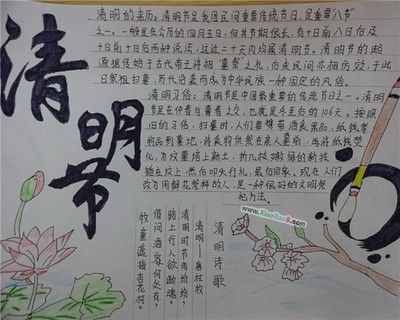 清明节
清明的来历：清明节是我国民间重要传统节日，是重要"八节
之一。一般是在公历的四月五日，但其节期很长，有十日前八日后及
十日前十日后两种说法，这近二十天内均属清明节。清明节的起
源据传始于古代帝王将相"墓祭"之礼，后来民间亦相仿效，于此
日祭祖扫墓，历代沿袭而成为中华民族一种固定的风俗。
清明习俗：清明节是中国最重要的传统节日之一。清明
节是在仲春与暮春之交，也就是冬至后的106天。按照
旧的习俗，扫墓时，人们要携带酒食果品，纸钱等
物品到墓地，将食物供祭在亲人墓前，再将纸钱焚
化，为坟墓培上新土，折几枝嫩绿的新枝
插在坟上，然后叩头行礼，最后回家。现在人们
改为用鲜花祭祥故人，是一种很好的文明祭
祀方法。
www.XiaoBao8.com
清明诗歌
清明——唐杜牧
清明时节雨纷纷，
路上行人欲断魂。
借问酒家何处有，
牧童遥指杏花村。